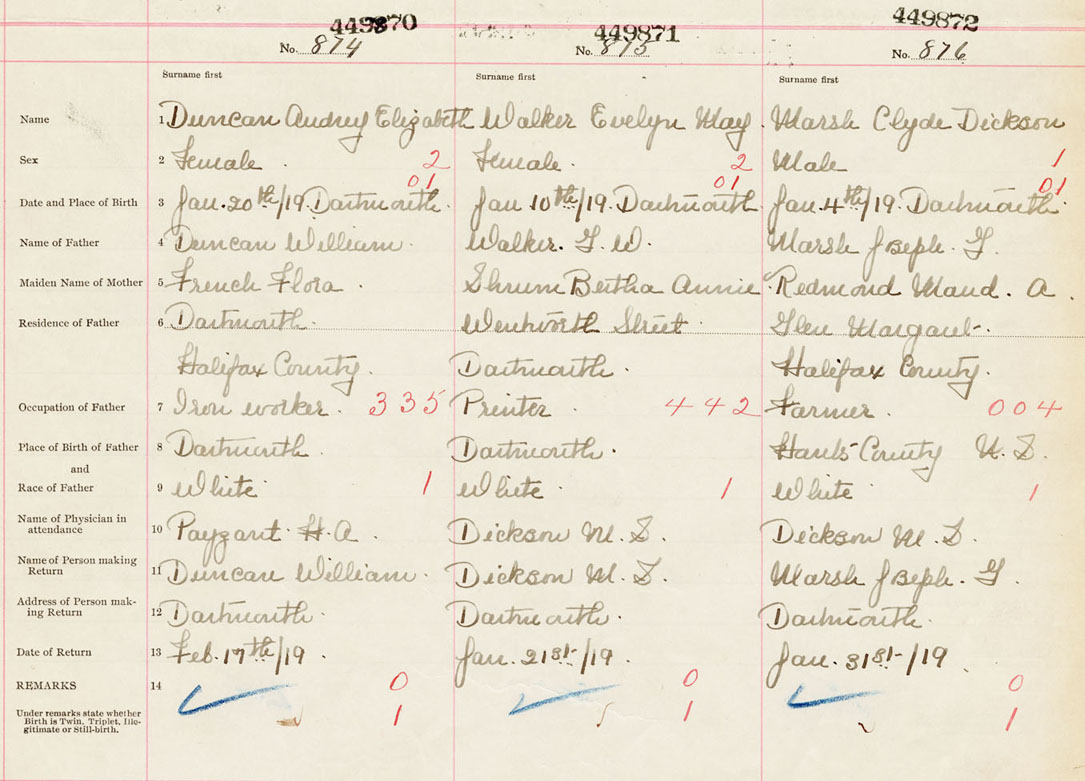 449870 449871 449872
No. 874 No. 875 No. 876
Surname first Surname first Surname first
Name 1 Duncan Audrey Elizabeth Walker Evelyn May. Marsh Clyde Dickson
Sex 2 Female. 2 Female. 2 Male 1
01 01 01
Date and Place of Birth 3 Jan. 20th/19. Dartmouth. Jan 10th/19. Dartmouth Jan. 4th/19. Dartmouth.
Name of Father 4 Duncan William. Walker. G. W. Marsh Joseph. G.
Maiden Name of Mother 5 French Flora. Shrum Bertha Annie. Redmond Maud. A.
Residence of Father 6 Dartmouth. Wentworth Street. Glen Margaret.
Halifax County. Dartmouth. Halifax County.
Occupation of Father 7 Iron worker. 335 Printer 442 Farmer. 004
Place of Birth of Father 8 Dartmouth. Dartmouth. Hants County N. S.
and
Race of Father 9 White. 1 White. 1 White. 1
Name of Physician in
attendance 10 Payzant H. A. Dickson M. S. Dickson M. S.
Name of Person making
Return 11 Duncan William. Dickson M. S. Marsh Joseph. G.
Address of Person mak-
ing Return 12 Dartmouth Dartmouth. Dartmouth.
Date of Return 13 Feb. 17th/19. Jan. 21st/19. Jan. 31st/19.
REMARKS 14 0 0 0
Under remarks state whether
Birth is Twin, Triplet, Ille-
gitimate or Still-birth. 1 1 1